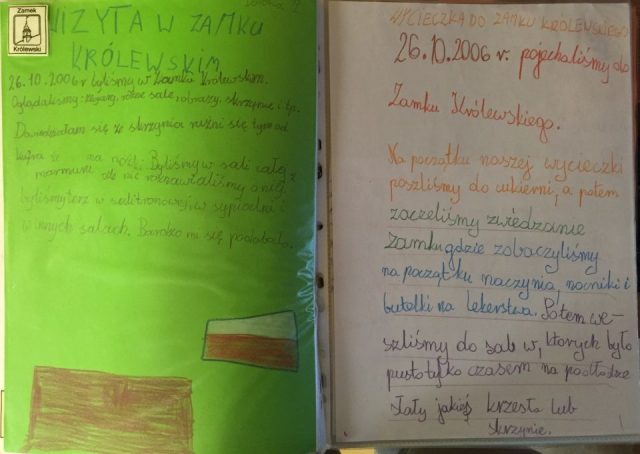 Zamek
Królewski
WIZYTA W ZAMKU
KRÓLEWSKIM
26.10.2006 r byliśmy w Zamku Królewskim.
Oglądaliśmy: zegary, różne sale, obrazy, skrzynie i tp.
Dowiedziałam się że skrzynia rużni się tym od
że ma nóżki. Byliśmy w sali całej z
marmuru ale nie rozmawialiśmy o niej,
byliśmy też w sali tronowej, w sypialni i
w innych salach. Bardzo mi się podobało.
WYCIECZKA DO ZAMKU KRÓLEWSKIEGO
26.10.2006 r. pojechaliśmy do
Zamku Królewskiego.
Na początku naszej wycieczki
poszliśmy do cukierni, a potem
zaczeliśmy zwiedzanie
Zamku gdzie zobaczyliśmy
na początku naczynia, nocniki i
butelki na lekarstwa. Potem we-
szliśmy do sal w, których było
pusto tylko czasem na podłodze
stały jakieś krzesła lub
skrzynie.